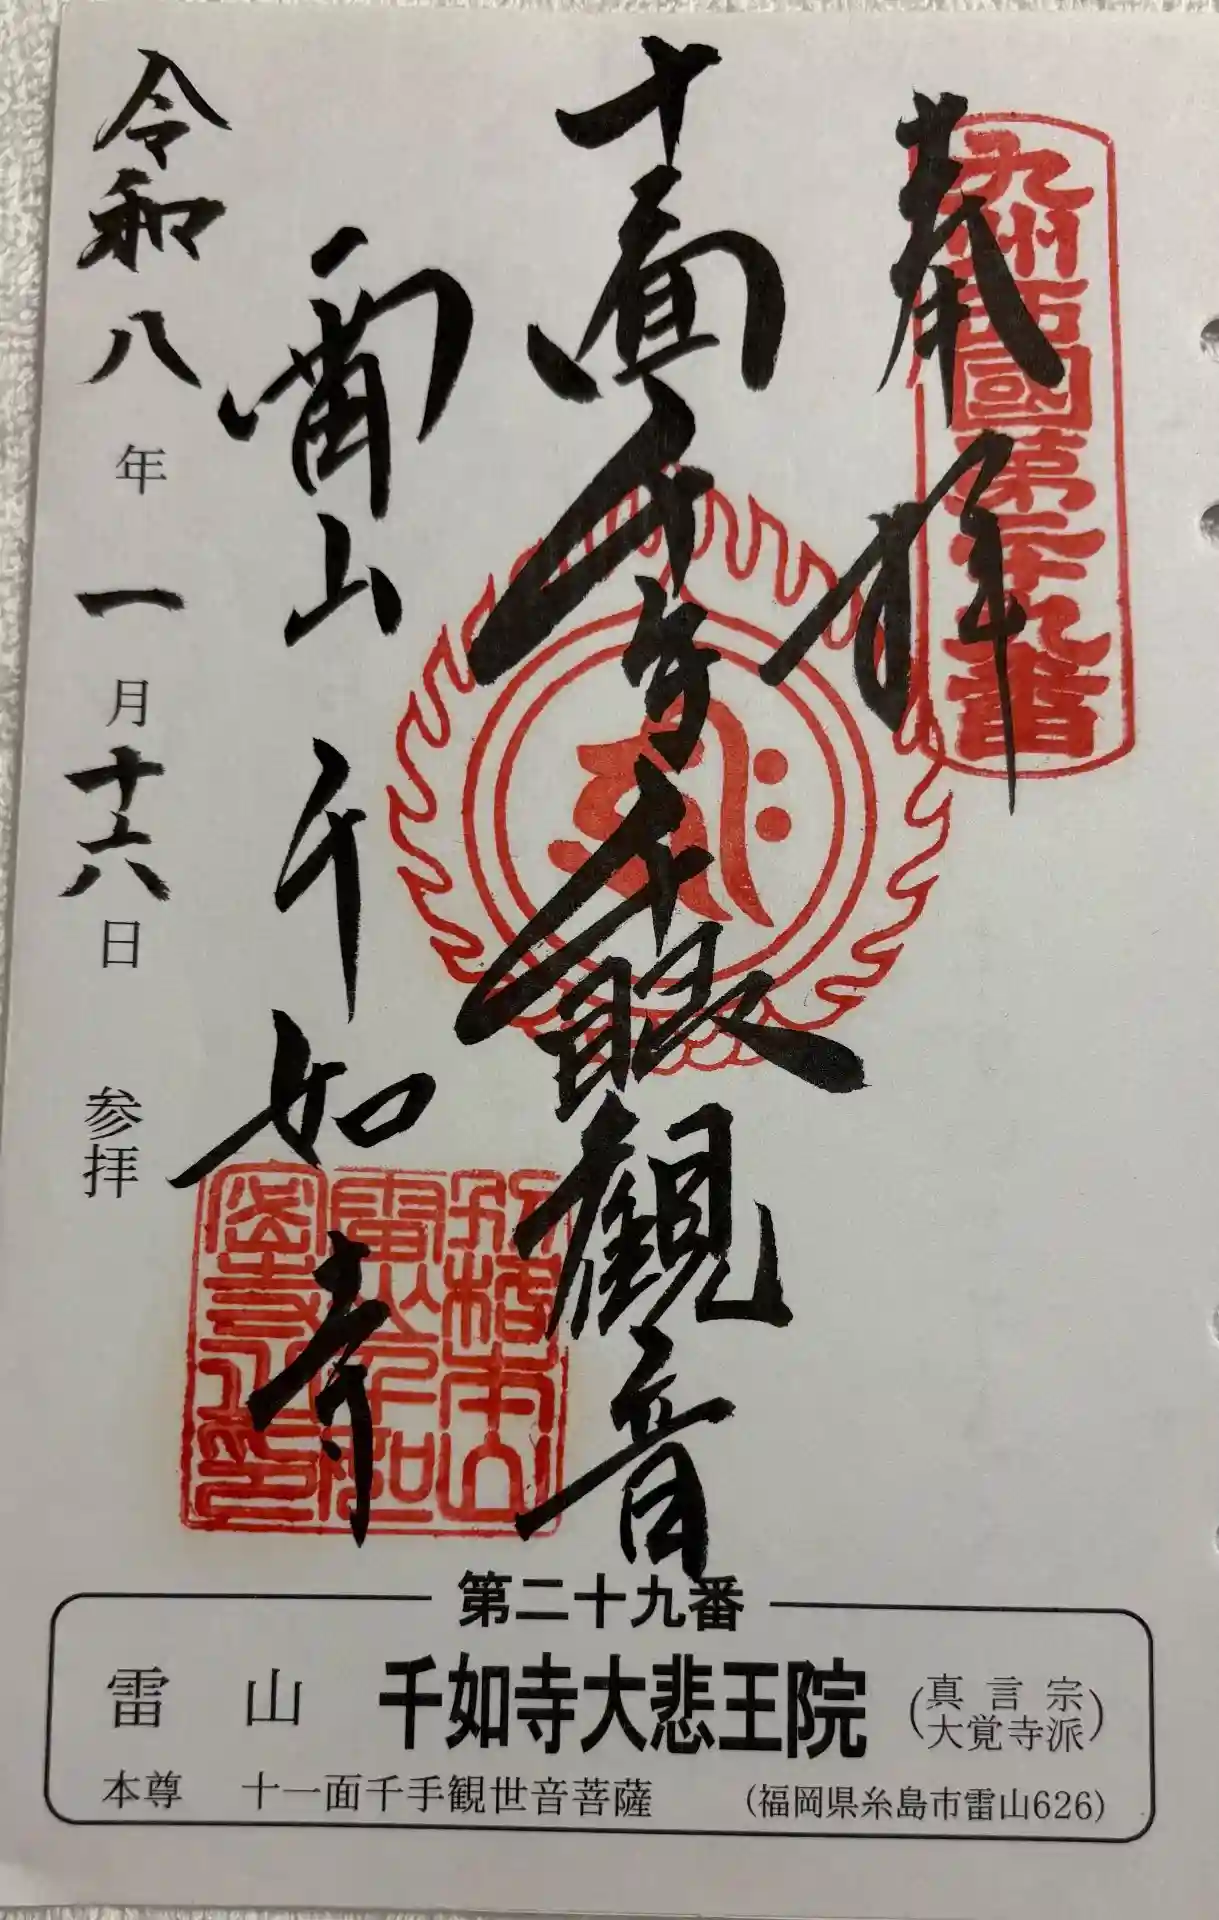 奉拝
九州西國第二十九番
十一面千手千眼観音
雷山千如寺
令和八年一月十六日 参拝
第二十九番
雷山 千如寺大悲王院 (真言宗 大覚寺派)
本尊 十一面千手観世音菩薩 (福岡県糸島市雷山626)